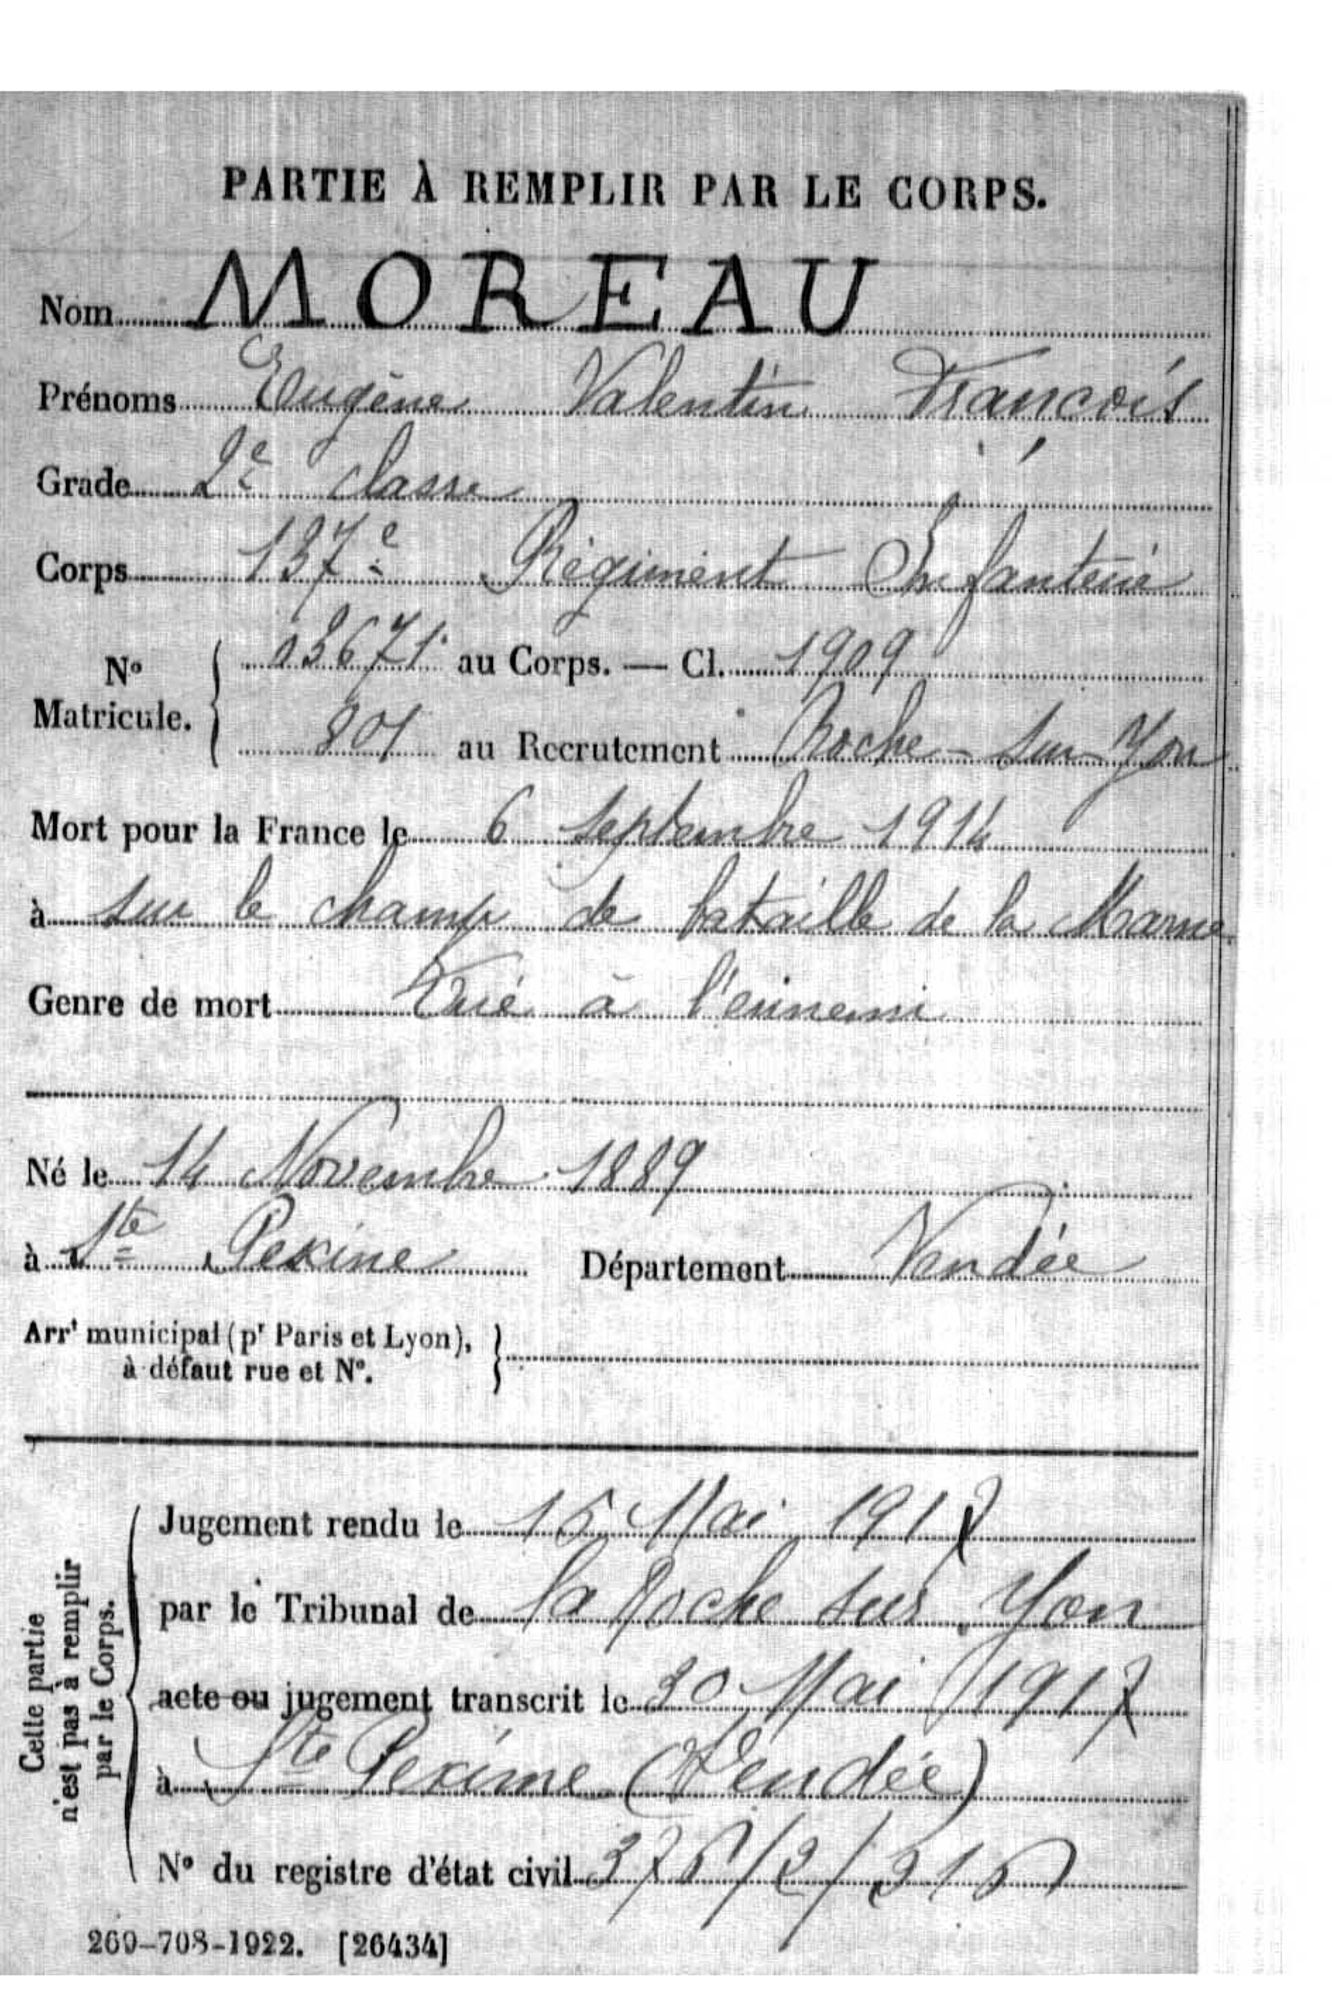 PARTIE À REMPLIR PAR LE CORPS.
Nom MOREAU
Prénoms Eugène Valentin François
Grade 2e classe
Corps 137e Régiment Infanterie
No Matricule. 03671 au Corps. — Cl. 1909
801 au Recrutement Roche-sur-Yon
Mort pour la France le 6 septembre 1914
à sur le champ de bataille de la Marne
Genre de mort Tué à l'ennemi
Né le 14 Novembre 1889
à Ste Pexine Département Vendée
Arrt municipal (pr Paris et Lyon),
à défaut rue et No.
Cette partie
n'est pas à remplir
par le Corps.
Jugement rendu le 15 Mai 1917
par le Tribunal de la Roche sur Yon
acte ou jugement transcrit le 30 Mai 1917
à Ste Pexine (Vendée)
No du registre d'état civil
269-708-1922. [26434]